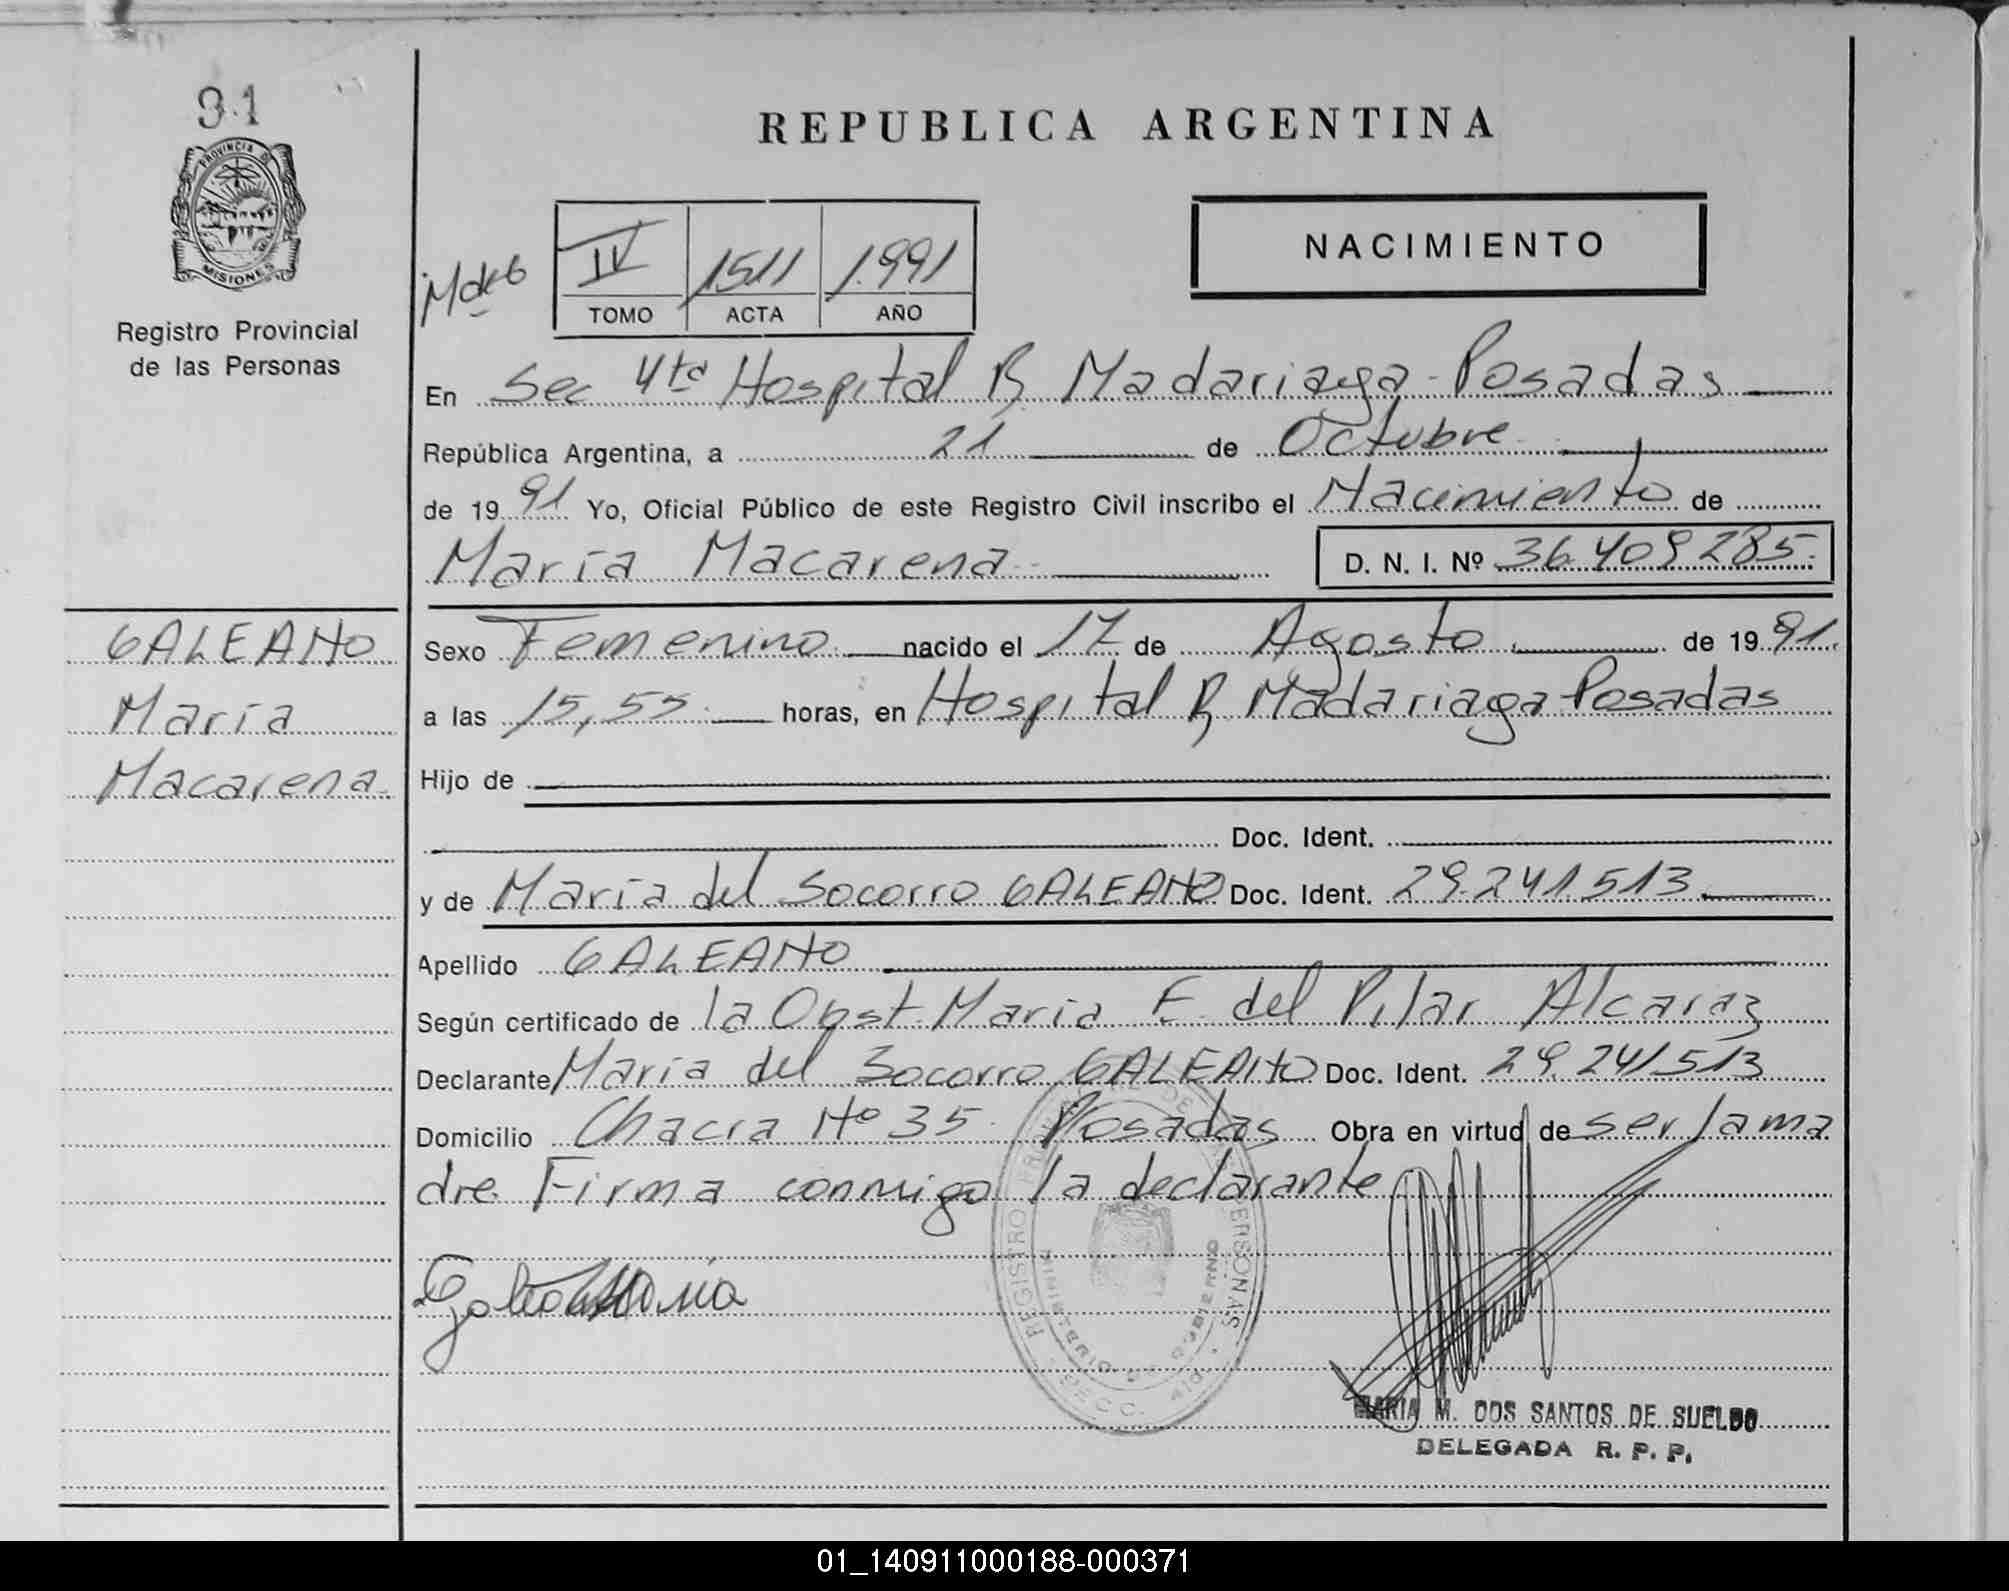 91
PROVINCIA DE
MISIONES
Registro Provincial
de las Personas
GALEANO
María
Macarena.
REPUBLICA ARGENTINA
NACIMIENTO
IV 1511 1.991
TOMO ACTA AÑO
En Sec 4ta Hospital R, Madariaga-Posadas
República Argentina, a 21 de Octubre
de 1991 Yo, Oficial Público de este Registro Civil inscribo el Nacimiento de
María Macarena D. N. I. Nº 36.409.285.
Sexo Femenino nacido el 17 de Agosto de 1991.
a las 15,55 horas, en Hospital R, Madariaga-Posadas
Hijo de
Doc. Ident.
y de María del Socorro GALEANO Doc. Ident. 29.241.513.
Apellido GALEANO
Según certificado de la Obst. María E. del Pilar Alcaraz
Declarante María del Socorro GALEANO Doc. Ident. 29.241513
Domicilio Chacra Nº 35. Posadas Obra en virtud de ser la ma
dre. Firma conmigo la declarante
REGISTRO PROVINCIAL DE LAS PERSONAS
MINISTERIO DE GOBIERNO
MARIA M. DOS SANTOS DE SUELDO
DELEGADA R. P. P.
01_140911000188-000371